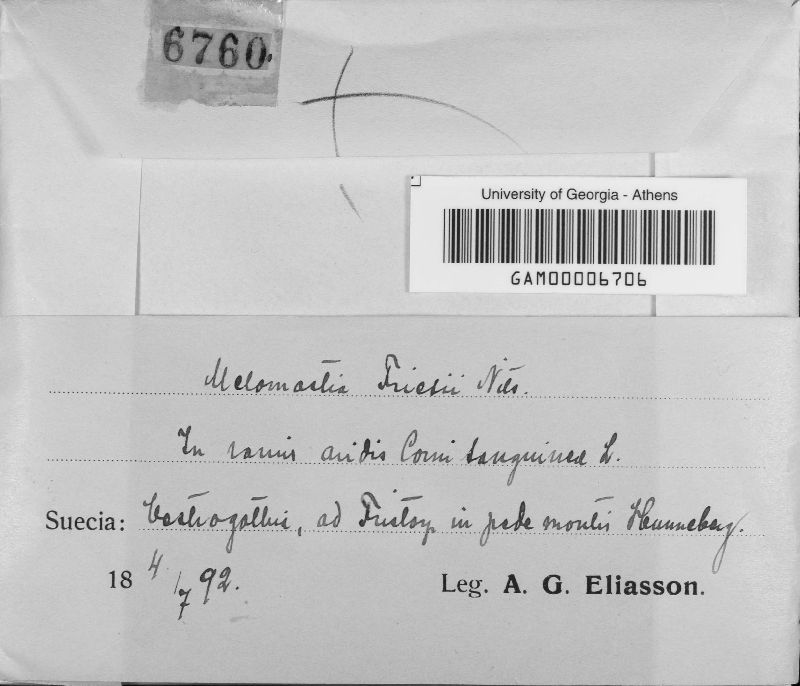 6760.
University of Georgia - Athens
GAM00006706
Melomastia Friesii Nits.
In ramis aridis Corni sanguinea L.
Suecia: Vestrogothia, ad Fristorp in pede montis Hunneberg.
18 4/7 92. Leg. A. G. Eliasson.